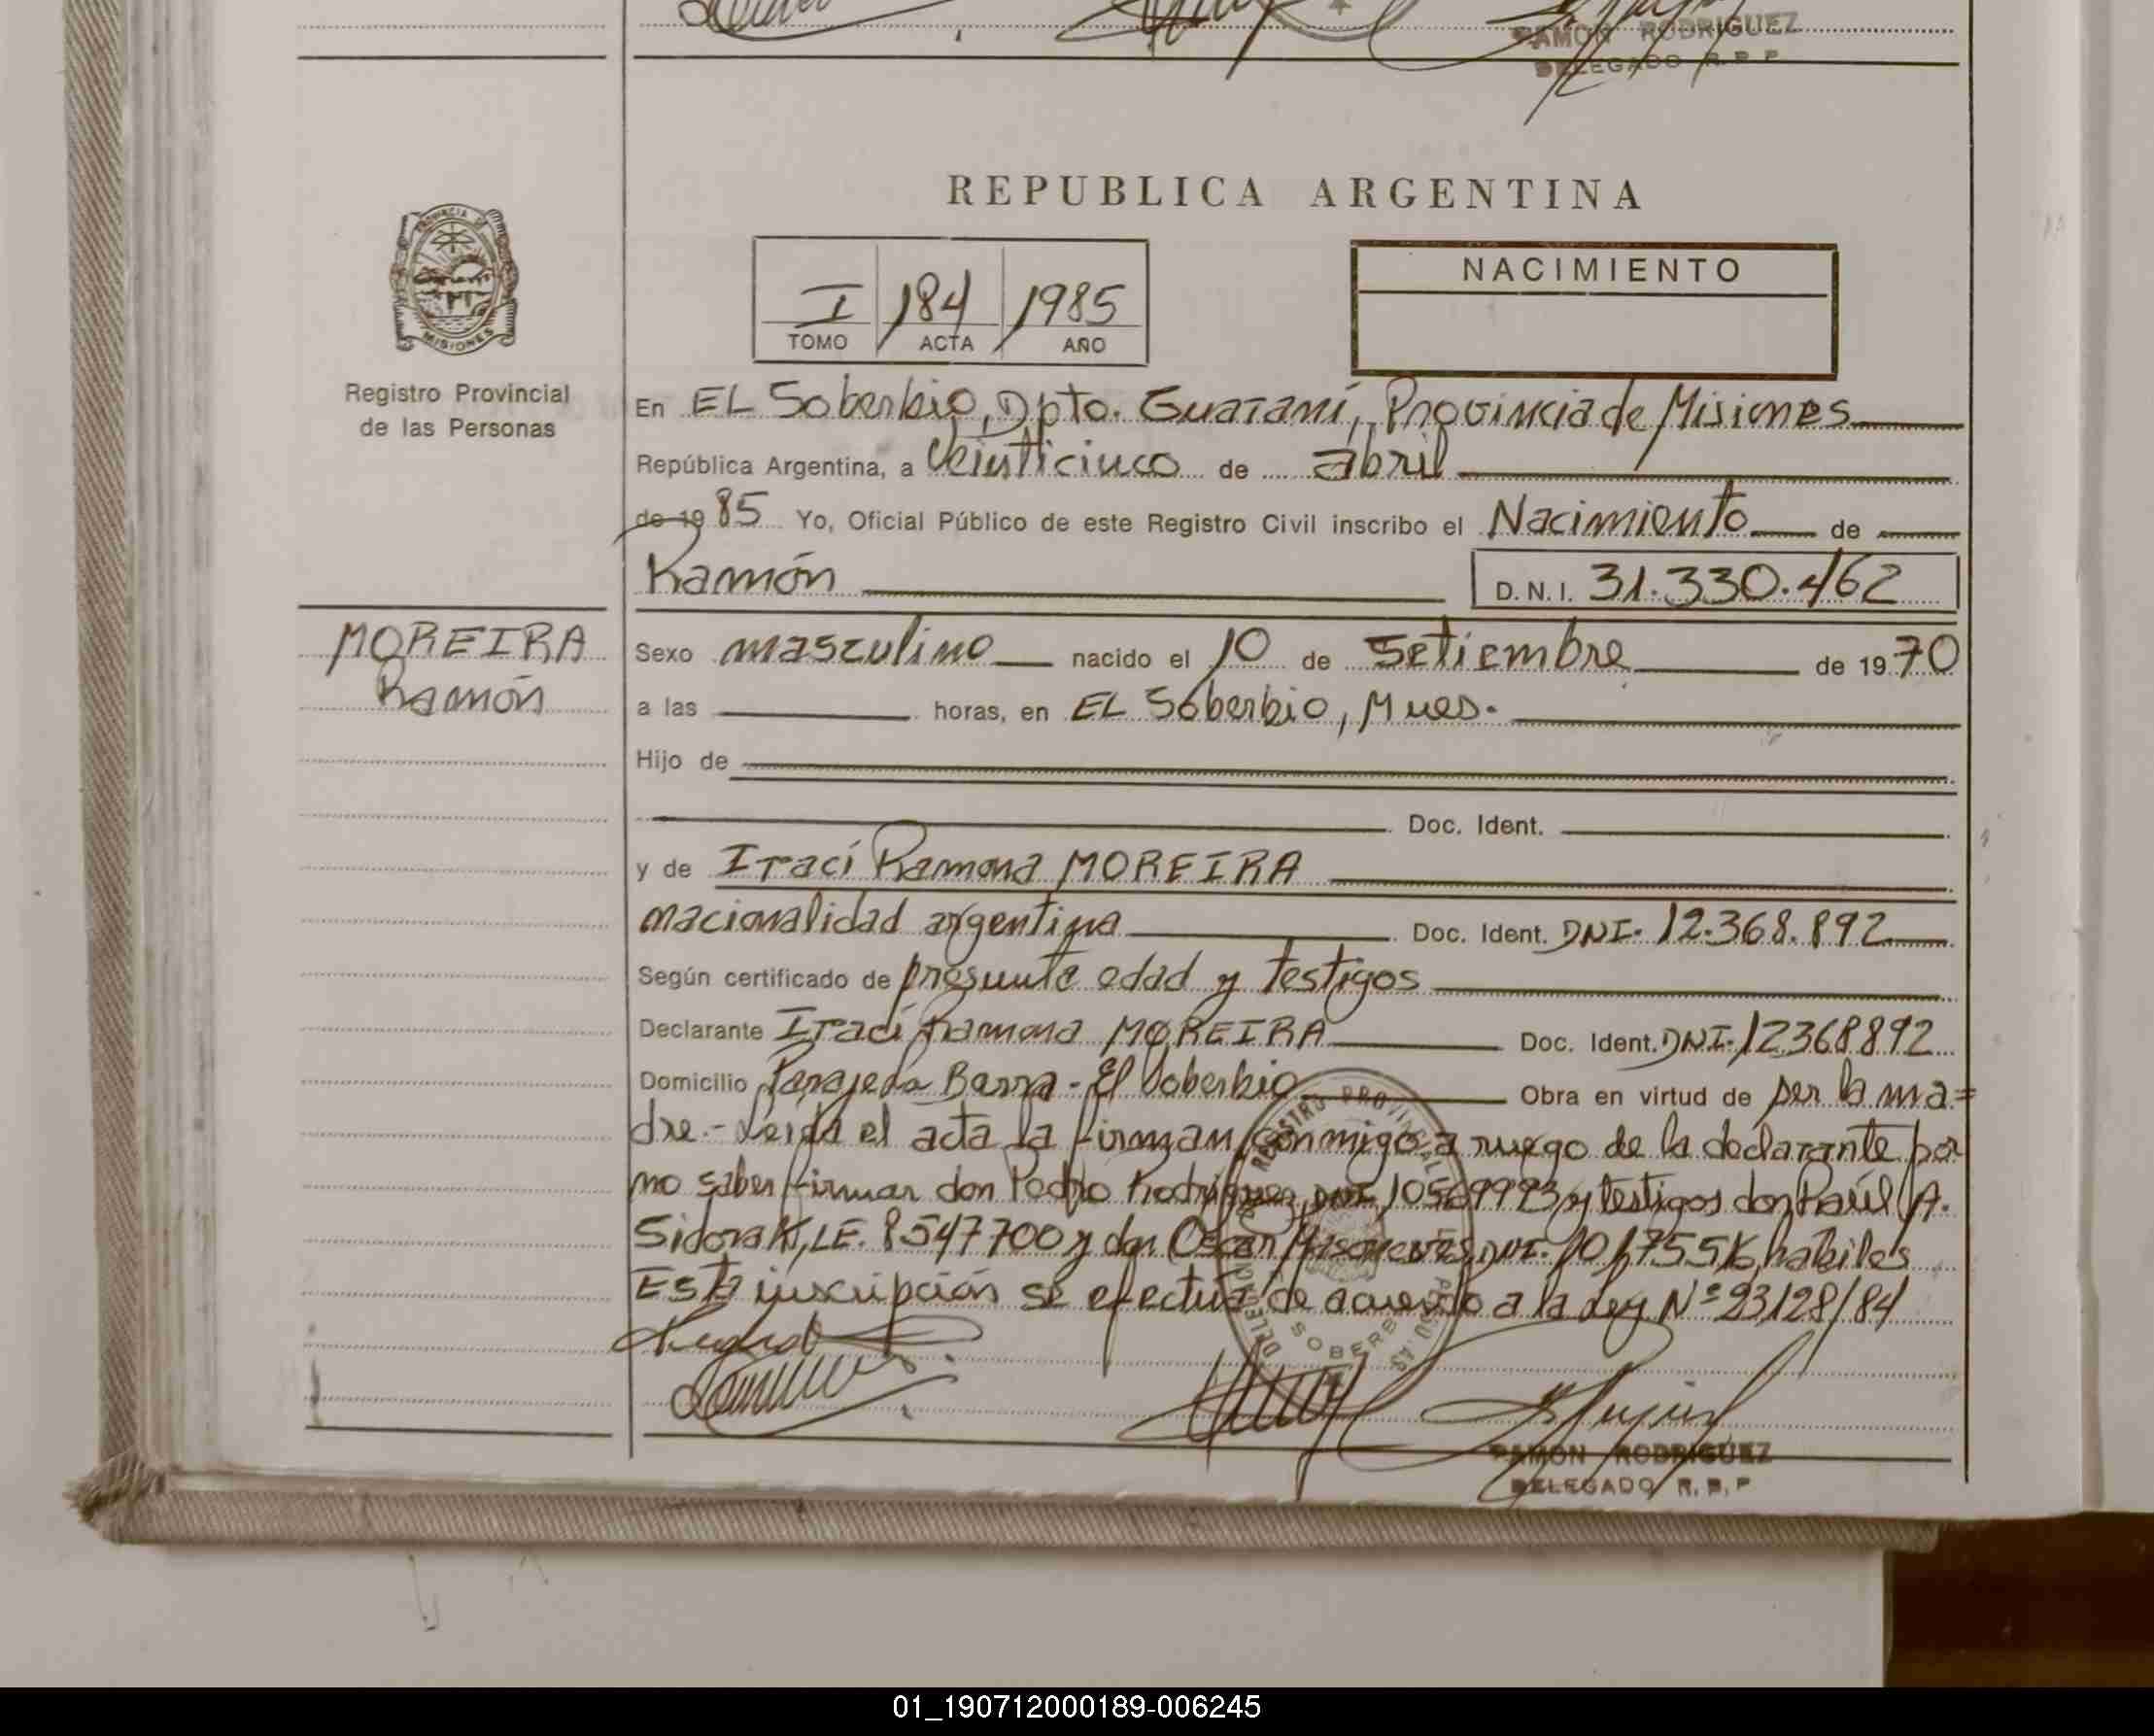 RAMON RODRIGUEZ
DELEGADO R. P. P
REPUBLICA ARGENTINA
PROVINCIA DE
MISIONES
Registro Provincial
de las Personas
I 184 1985
TOMO ACTA AÑO
NACIMIENTO
En EL Soberbio, Dpto. Guaraní, Provincia de Misiones
República Argentina, a veinticinco de abril
de 19 85 Yo, Oficial Público de este Registro Civil inscribo el Nacimiento de
Ramón D.N.I. 31.330.462
MOREIRA
Ramón
Sexo masculino nacido el 10 de Setiembre de 1970
a las horas, en EL Soberbio, Mnes.
Hijo de
Doc. Ident.
y de Iraci Ramona MOREIRA
nacionalidad argentina Doc. Ident. DNI. 12.368.892
Según certificado de presunta edad y testigos
Declarante Iraci Ramona MOREIRA Doc. Ident. DNI. 12368892
Domicilio Barra - El Soberbio Obra en virtud de ser la ma=
dre.- Leida el acta la firman conmigo a ruego de la declarante por
no saber firmar don Pedro Rodriguez, DNI. 10569993 y testigos don Raúl A.
Sidorak, LE. 8547700 y don Oscar DNI. habiles
Esta inscripción se efectua de acuerdo a la Ley Nº 23128/84
REGISTRO PROVINCIAL
SOBERBIO
RAMON RODRIGUEZ
DELEGADO R. P. P
01_190712000189-006245